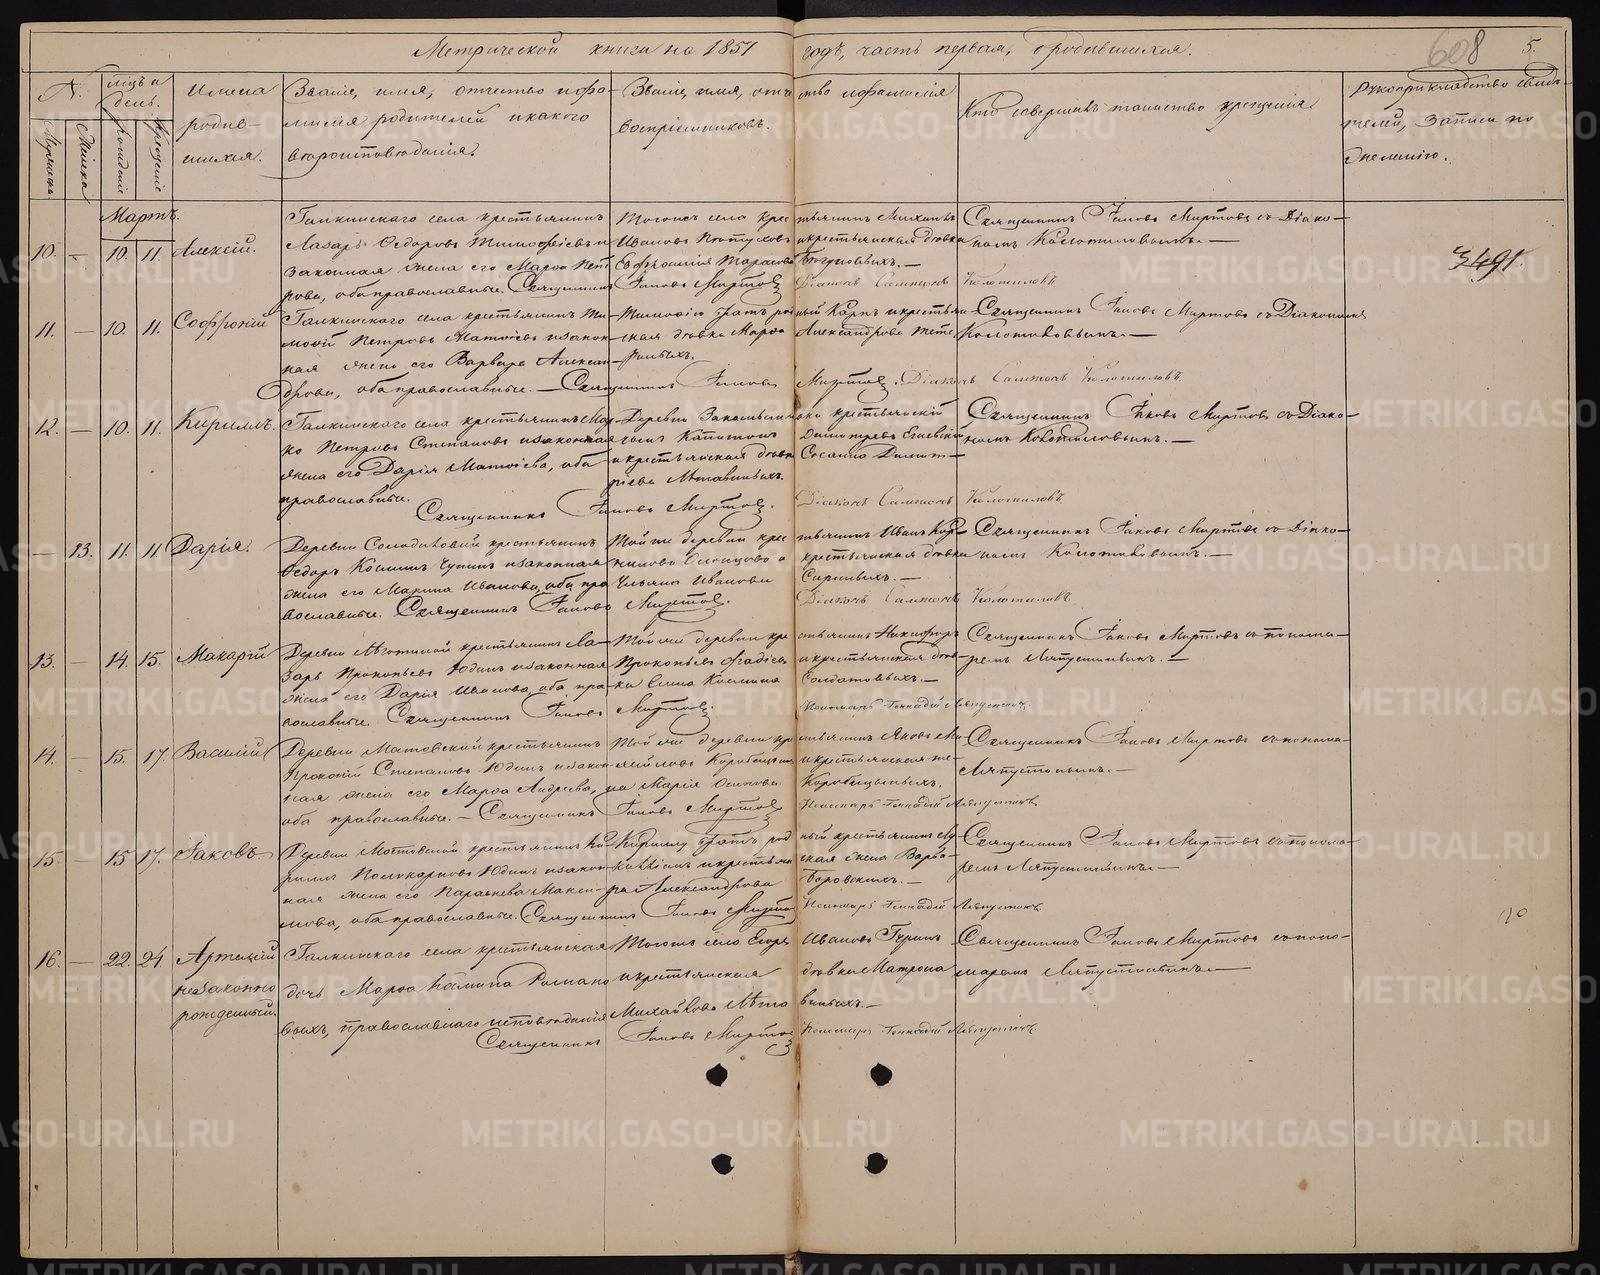 Метрической книги на 1851 годъ, часть первая, о родившихся.
608
5.
№.
Мужеска
Женска
мѣсяцъ и день.
рожденіе
крещеніе
Имена родив-
шихся.
Званіе, имя, отчество и фа-
милія родителей и какого
вѣроисповѣданія.
Званіе, имя, отчество и фамилія
воспріемниковъ.
Кто совершилъ таинство крещенія
Рукоприкладство свидѣ-
телей, записи по
желанію.
Мартъ.
10. — 10. 11. Алексѣй.
Галкинскаго села крестьянинъ
Лазарь Ѳедоровъ и
законная жена его Марѳа Пет
рова, оба православные. Священникъ Іаковъ Миртовъ
Тогожъ села крестьянинъ Михаилъ
Ивановъ и крестьянская дѣвка
Евфросинія Тарасова
Діаконъ Сампсонъ Колотиловъ
Священникъ Іаковъ Миртовъ съ Діако-
номъ Колотиловымъ. —
3491.
11. — 10. 11. Софроній
Галкинскаго села крестьянинъ Ти-
моѳей Петровъ Матѳіевъ и закон-
ная жена его Варвара Алексан-
дрова, оба православные. — Священникъ Іаковъ Миртовъ. Діаконъ Сампсонъ Колотиловъ
Тимоѳею братъ родный Карпъ и крестьян-
ская дѣвка Марѳа Александрова
Священникъ Іаковъ Миртовъ съ Діакономъ
Колотиловымъ. —
12. — 10. 11. Кириллъ.
Галкинскаго села крестьянинъ Мар-
ко Петровъ Степановъ и законная
жена его Дарія Матѳіева, оба
православные.
Священникъ Іаковъ Миртовъ.
Деревни крестьянскій
сынъ Капитонъ Димитріевъ
и крестьянская дѣвка Сосанна Димит-
ріева
Діаконъ Сампсонъ Колотиловъ
Священникъ Іаковъ Миртовъ съ Діако-
номъ Колотиловымъ. —
— 13. 11. 11 Дарія.
Деревни Солодиловой крестьянинъ
Ѳедоръ Космин Чупинъ и законная
жена его Марина Иванова, оба пра
вославные. Священникъ Іаковъ Миртовъ.
Той же деревни крестьянинъ Иванъ Кор-
ниловъ и крестьянская дѣвка
Ульяна Иванова
Діаконъ Сампсонъ Колотиловъ
Священникъ Іаковъ Миртовъ съ Діако-
номъ Колотиловымъ. —
13. — 14. 15. Макарій
Деревни крестьянинъ Ла-
зарь Прокопьевъ Юдинъ и законная
жена его Дарія Иванова, оба пра-
вославные. Священникъ Іаковъ Миртовъ.
Той же деревни крестьянинъ Никифоръ
Прокопьевъ и крестьянская дѣв-
ка Елена Космина Солдатовыхъ. —
Пономарь Геннадій Ляпустинъ.
Священникъ Іаковъ Миртовъ съ понома-
ремъ Ляпустинымъ. —
14. — 15. 17. Василій
Деревни Матовской крестьянинъ
Прокопій Степановъ Юдинъ и закон-
ная жена его Марѳа Андреева,
оба православные. — Священникъ Іаковъ Миртовъ
Той же деревни крестьянинъ Яковъ
и крестьянская же-
на Марія Осипова Коробицыныхъ.
Пономарь Геннадій Ляпустинъ.
Священникъ Іаковъ Миртовъ съ понома-
Ляпустинымъ. —
15. — 15 17. Іаковъ
Деревни Матовской крестьянинъ Ки-
риллъ Поликарповъ Юдинъ и закон-
ная жена его Параскева Макси-
мова, оба православные. Священникъ Іаковъ Миртовъ
Кириллу братъ родный крестьянинъ
и крестьянская жена Варва-
ра Александрова Боровскихъ. —
Пономарь Геннадій Ляпустинъ.
Священникъ Іаковъ Миртовъ съ понома-
ремъ Ляпустинымъ. —
16. — 22. 24. Артемій
незаконно
рожденный.
Галкинскаго села крестьянская
дочь Марѳа Космина Романо
выхъ, православнаго исповѣданія
Священникъ Іаковъ Миртовъ
Тогожъ села Егоръ Ивановъ
и крестьянская дѣвка Матрона
Михайлова
Пономарь Геннадій Ляпустинъ.
Священникъ Іаковъ Миртовъ съ поно-
маремъ Ляпустинымъ. —
METRIKI.GASO-URAL.RU